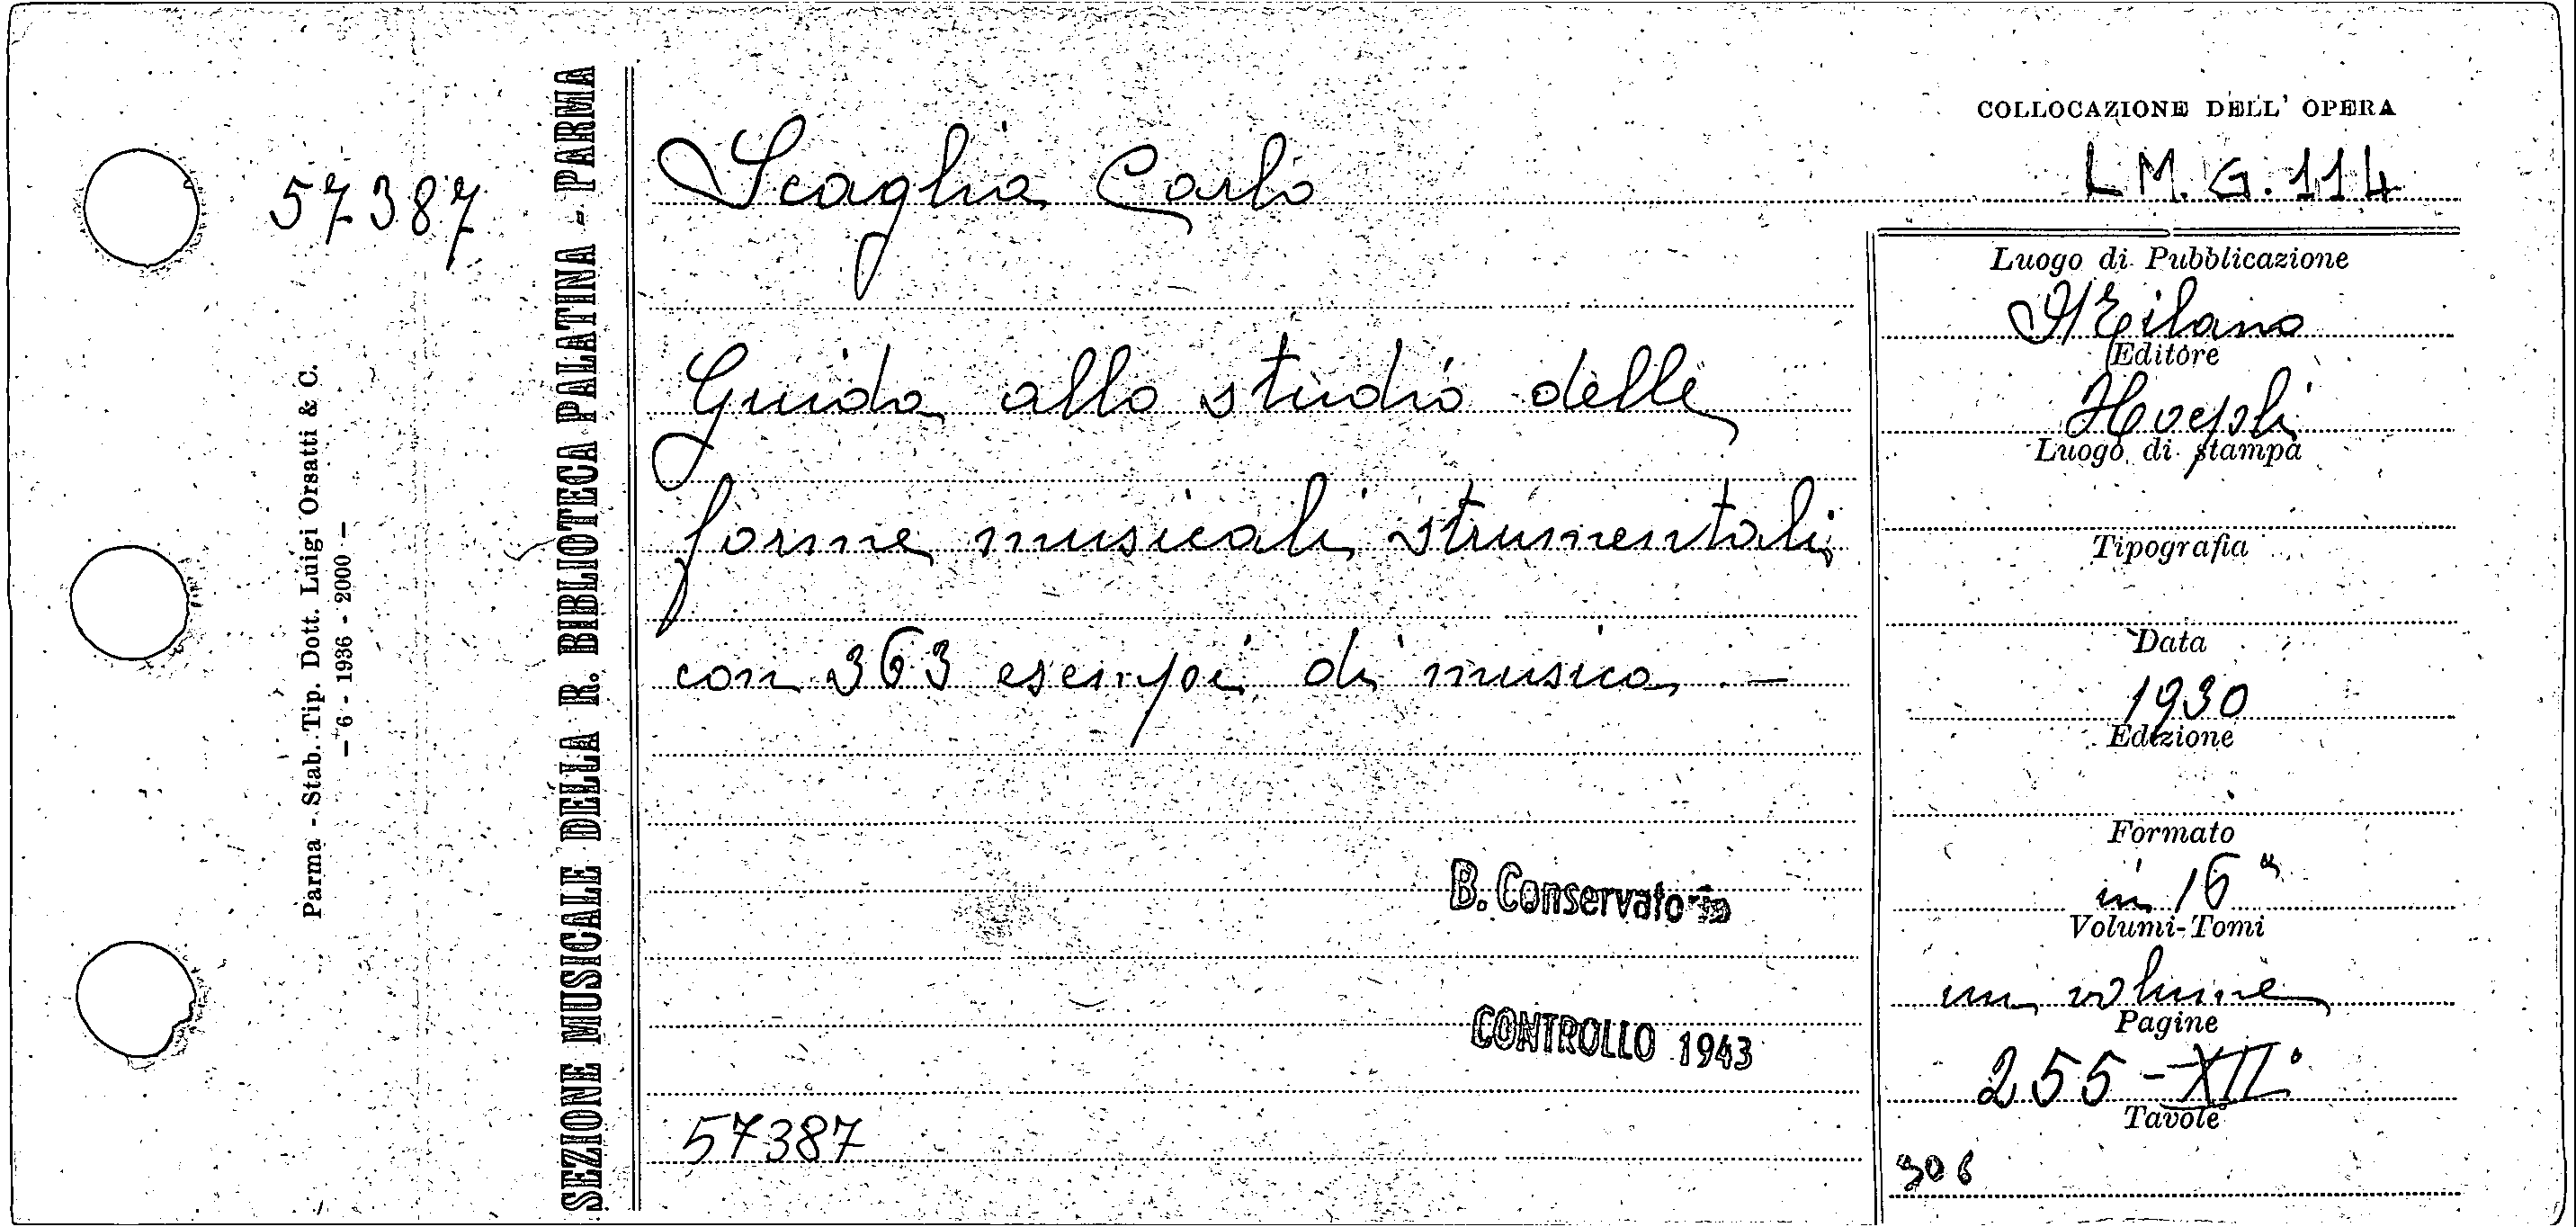 57387
Parma - Stab. Tip. Dott. Luigi Orsatti & C.
— 6 - 1936 - 2000 —
SEZIONE MUSICALE DELLA R. BIBLIOTECA PALATINA - PARMA
Scaglia Carlo
Guida allo studio delle
forme musicali strumentali
con 363 esempi di musica. —
B. Conservatorio
CONTROLLO 1943
57387
COLLOCAZIONE DELL' OPERA
L M. G. 114
Luogo di Pubblicazione
Milano
Editore
Hoepli
Luogo di stampa
Tipografia
Data
1930
Edizione
Formato
in 16°
Volumi-Tomi
un volume
Pagine
255 - XII°
Tavole
306